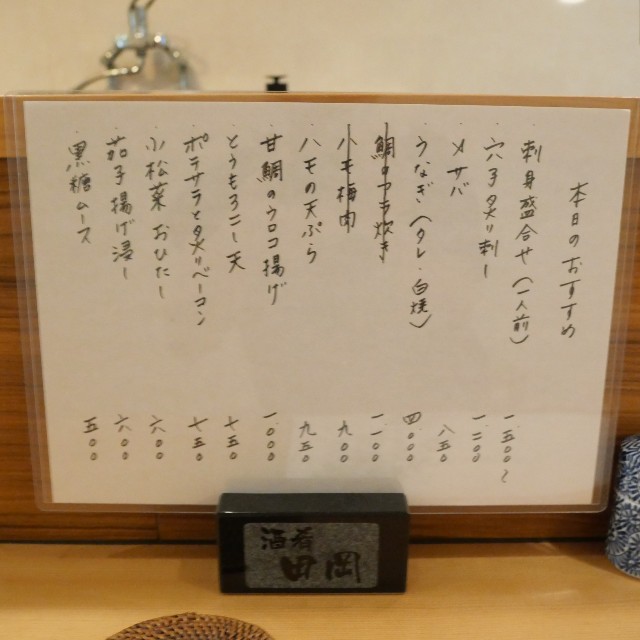 本日のおすすめ
刺身盛合せ（一人前） 一五〇〇～
穴子炙り刺し 一二〇〇
〆サバ 八五〇
うなぎ（タレ・白焼） 四〇〇〇
鯛のアラ炊き 一一〇〇
ハモ梅肉 九〇〇
ハモの天ぷら 九五〇
甘鯛のウロコ揚げ 一〇〇〇
とうもろこし天 七五〇
ポテサラと炙りベーコン 七五〇
小松菜おひたし 六〇〇
茄子揚げ浸し 六〇〇
黒糖ムース 五〇〇
酒肴
田岡